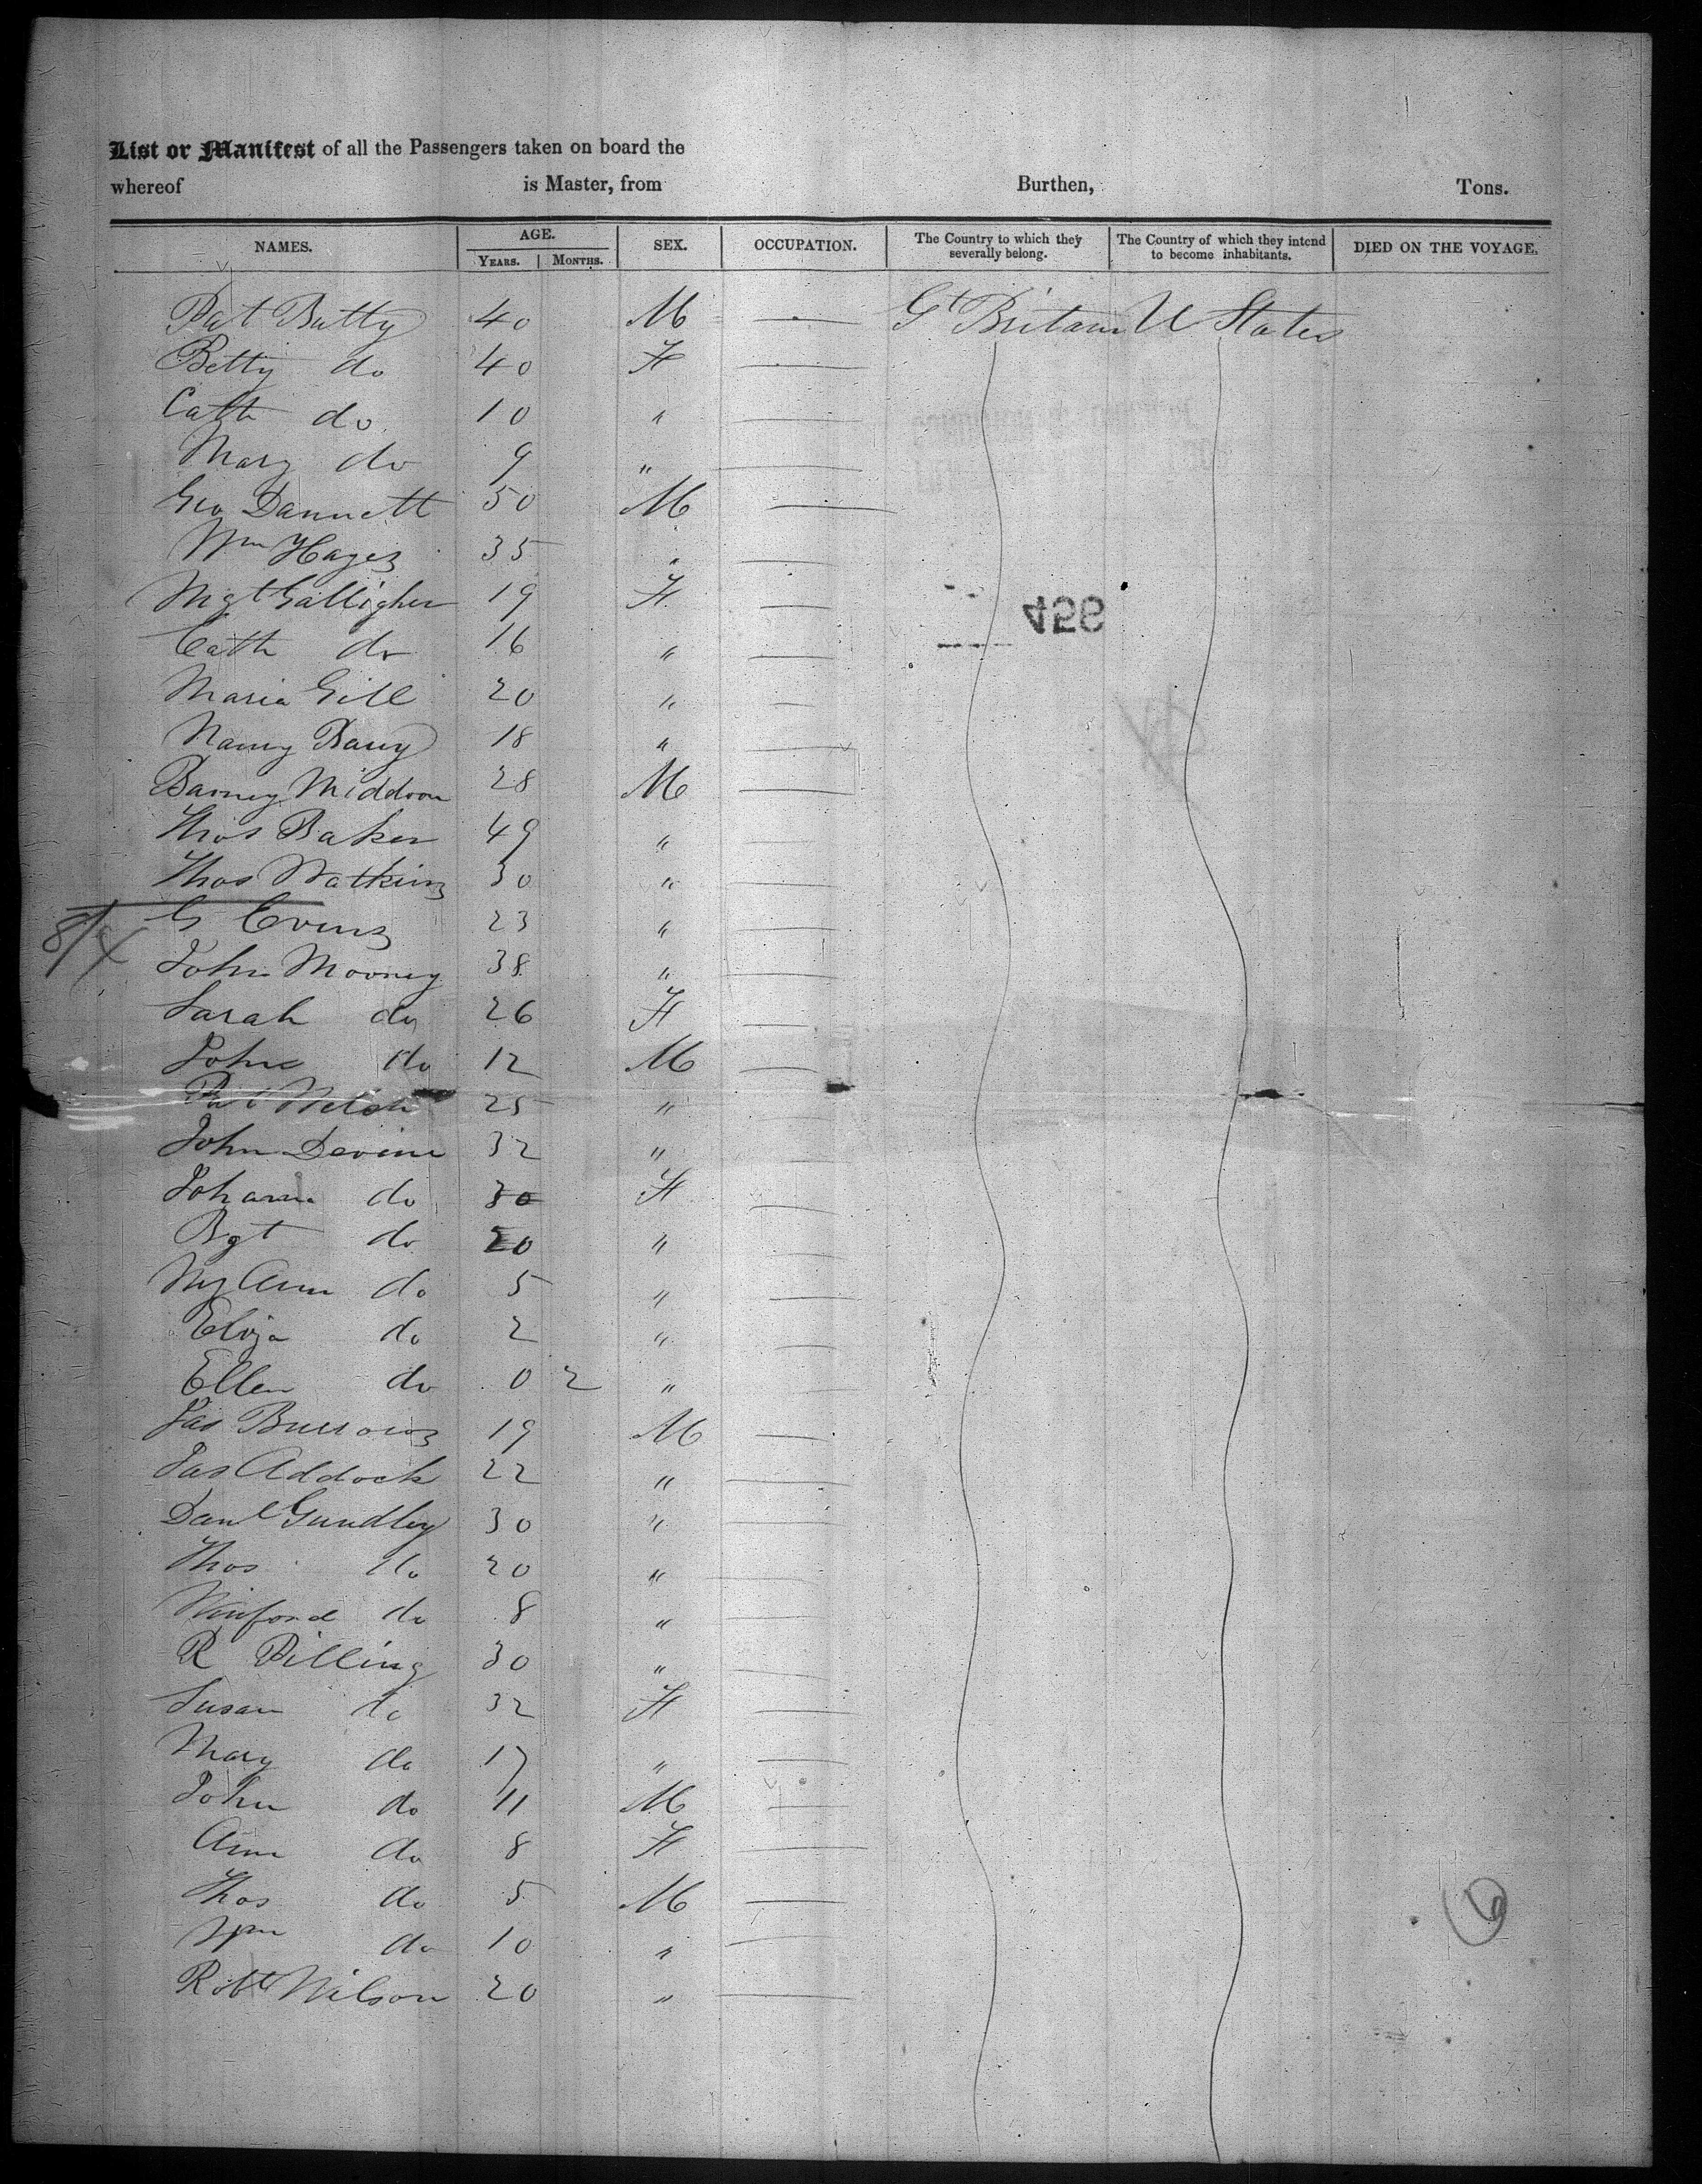 List or Manifest of all the Passengers taken on board the
whereof is Master, from Burthen, Tons.
NAMES. AGE. SEX. OCCUPATION. The Country to which they severally belong. The Country of which they intend to become inhabitants. DIED ON THE VOYAGE.
YEARS. MONTHS.
Pat Batty 40 M — Gt Britain U States
Betty do 40 F —
Cath do 10 " —
Mary do 9 " —
Geo Dannett 50 M —
Wm Hayes 35 " —
Mgt Galligher 19 F —
Cath do 16 " —
Maria Gill 20 " —
Nancy 18 " —
Barney Middron 28 M —
Thos Baker 49 " —
Thos Watkins 30 " —
G Evins 23 " —
John Mooney 38 " —
Sarah do 26 F —
John do 12 M —
Pat Welsh 25 "
John Devine 32 " —
Johanna do 30 F —
Bgt do 20 " —
My Ann do 5 " —
Eliza do 2 " —
Ellen do 0 2 " —
Jas Burrows 19 M —
Jas Addock 22 " —
Danl Gundley 30 " —
Thos do 20 " —
Winford do 8 " —
R Pilling 30 " —
Susan do 32 F —
Mary do 17 " —
John do 11 M —
Ann do 8 F —
Thos do 5 M —
Wm do 10 " —
Robt Wilson 20 " —